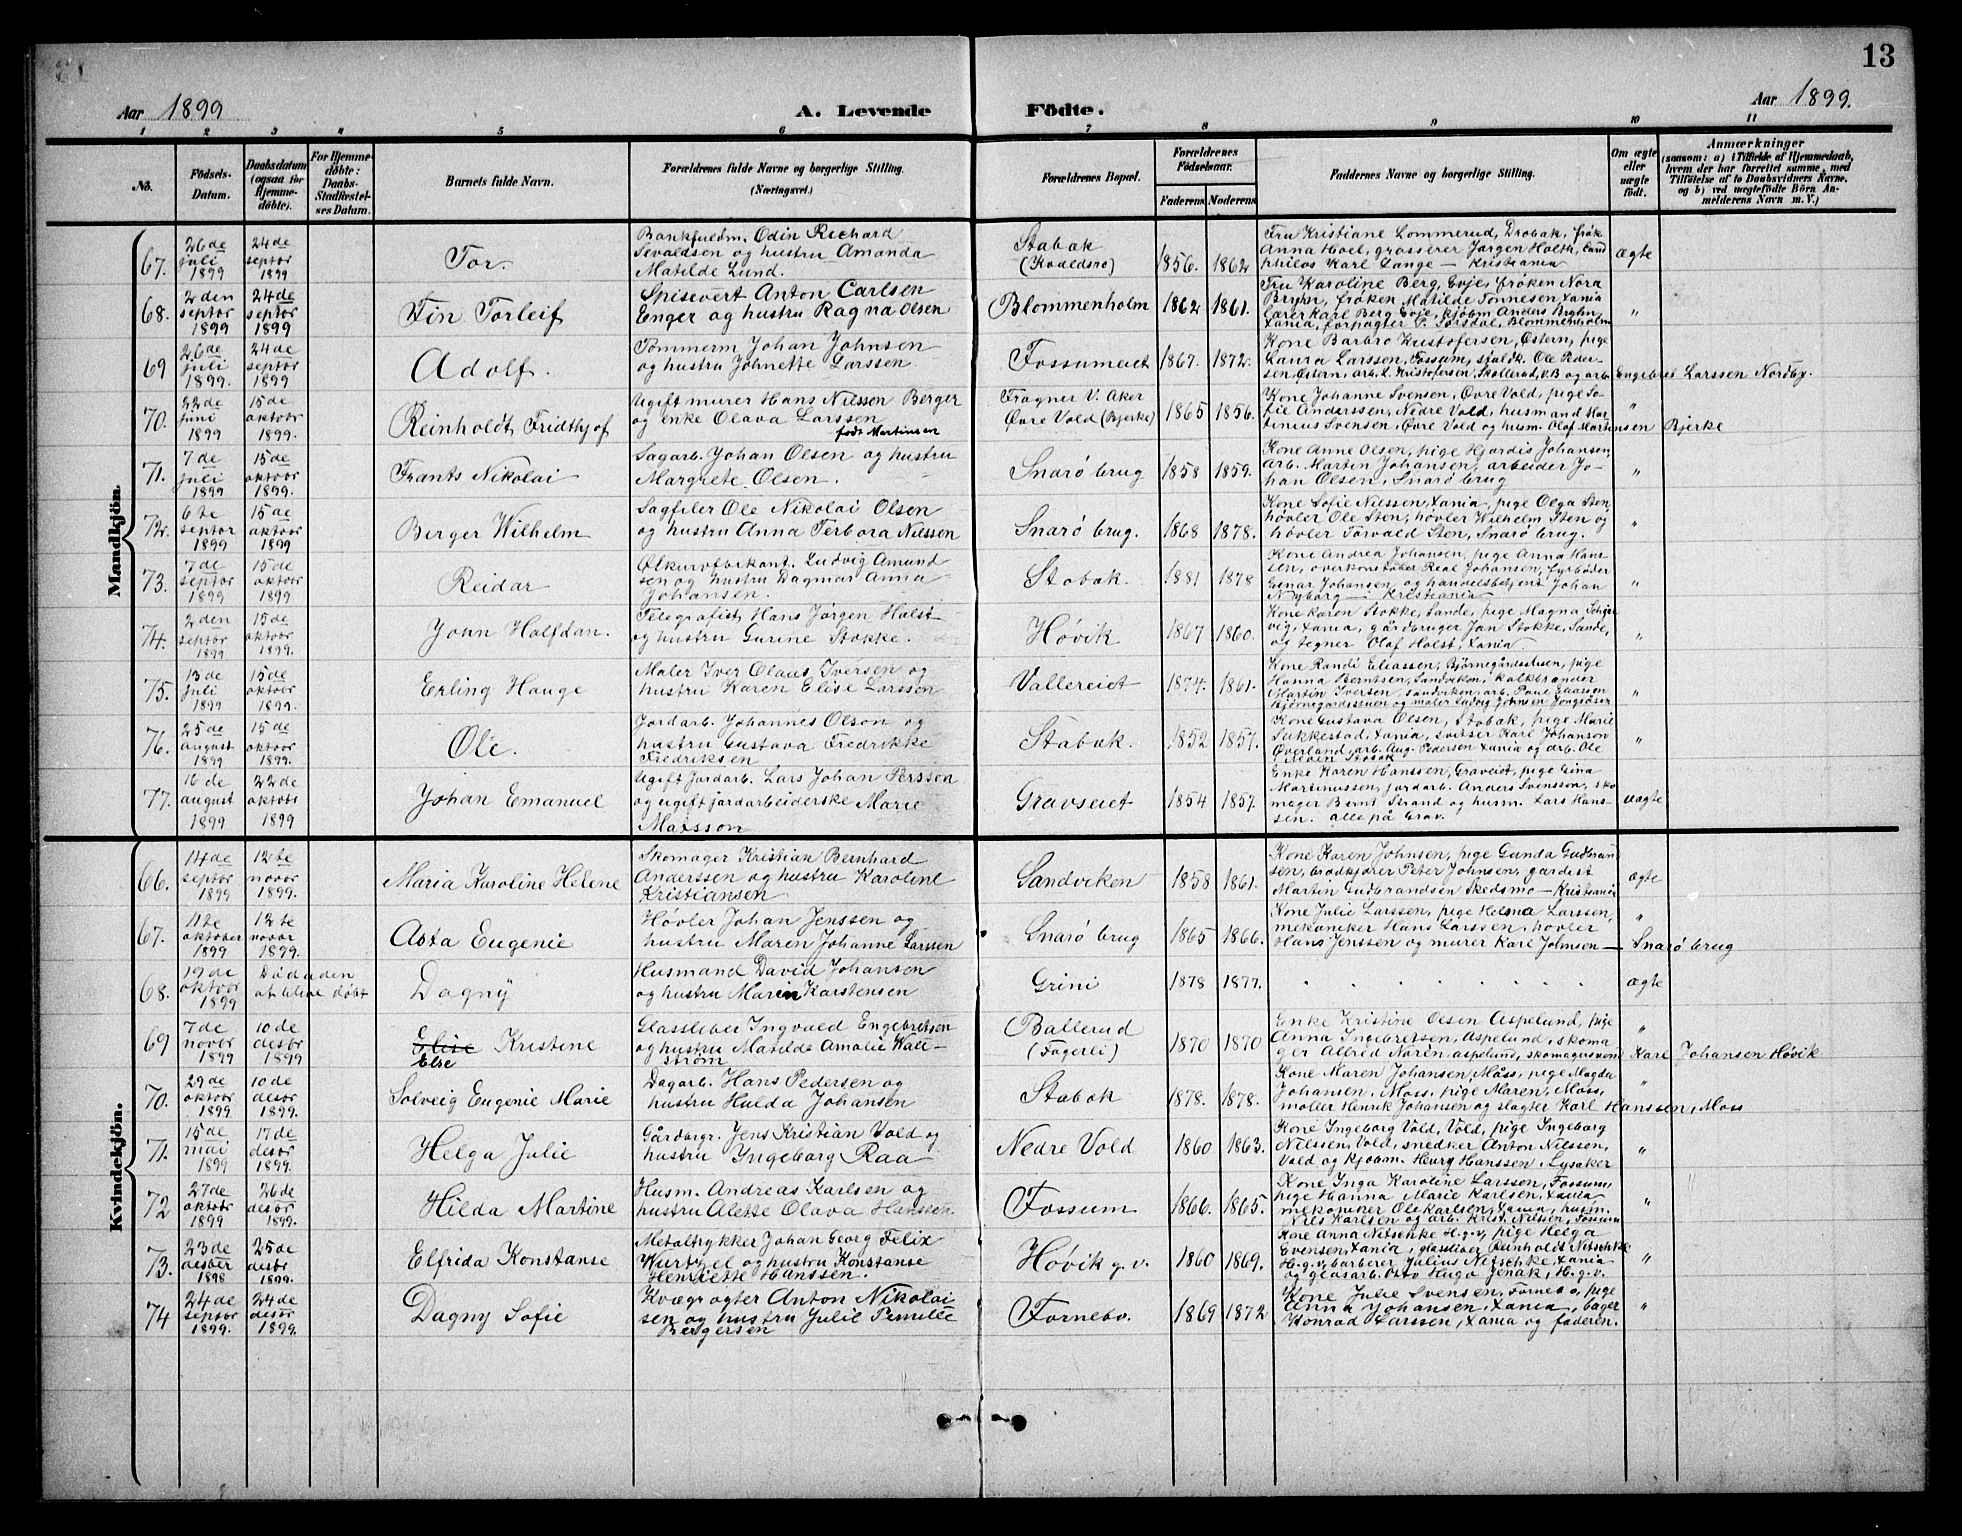 13
Aar 1899 A. Levende Födte. Aar 1899.
1 2 3 4 5 6 7 8 9 10 11
No.
Födsels-
Datum.
Daabsdatum
(ogsaa for
Hjemme-
döbte).
For Hjemme-
döbte:
Daabs-
Stadfæstel-
ses Datum.
Barnets fulde Navn.
Forældrenes fulde Navne og borgerlige Stilling.
(Næringsvei.)
Forældrenes Bopæl.
Forældrenes
Födselsaar.
Faderens Moderens
Faddernes Navne og borgerlige Stilling.
Om ægte
eller
uægte
födt.
Anmærkninger
(saasom: a) i Tilfælde af Hjemmedaab,
hvem der har forrettet samme, med
Tilföielse af to Daabsvidners Navne,
og b) ved uægtefödte Börn An-
melderens Navn m.V.)
Mandkjön.
67.
26de
juli
1899
24de
septbr
1899
Tor.
Bankfuldm. Odin Richard
Sevaldsen og hustru Amanda
Matilde Lund.
Stabæk
(Kvaldsro)
1856. 1862
Fru Kristiane Lommerud, Drøbak, frøk
Anna Hoel, grosserer Jørgen Holth, cand
philos Karl Lange — Kristiania
ægte
68.
2den
septbr
1899
24de
septbr
1899
Fin Torleif
Spisevert Anton Carlsen
Enger og hustru Ragna Olsen
Blommenholm
1862 1861.
Fru Karoline Berg, Evje, frøken Nora
Bryhn, frøken Matilde Tønnesen, Xania
lærer Karl Berg Evje, kjøbm Anders Bryhn,
Xania, forpagter P. Sørsdal, Blommenholm
"
69
26de
juli
1899.
24de
septbr
1899
Adolf.
Tømmerm Johan Johnsen
og hustru Johnette Larssen
Fossumeiet
1867. 1872.
Kone Barbro Kristofersen, Østern, pige
Laura Larssen, Fossum, staldk. Ole Peder-
sen, Østern, arb. L. Kristofersen, Skollerud, V.B og arb. Engebret Larssen Nordby.
70.
22de
juni
1899
15de
oktobr
1899.
Reinholdt Fridthjof
Ugift murer Hans Nilsson Berger
og enke Olava Larssen
født Martinsen
Frogner V. Aker
Øvre Vold (Bjerke)
1865 1856.
Kone Johanne Svensen, Øvre Vold, pige So-
fie Anderssen, Nedre Vold, husmand Mar-
tinius Svensen, Øvre Vold og husm. Olaf Martinsen Bjerke
"
71.
7de
juli
1899
15de
oktobr
1899.
Frants Nikolai
Sagarb. Johan Olsen og hustru
Margrete Olsen.
Snarø brug
1858 1859.
Kone Anne Olsen, pige Hjørdis Johansen,
arb. Martin Johansen, arbeider Jo-
han Olsen, Snarø brug
"
72.
6te
septbr
1899
15de
oktobr
1899
Berger Wilhelm
Sagfiler Ole Nikolai Olsen
og hustru Anna Terbora Nilssen
Snarø brug.
1868 1878.
Kone Sofie Nilssen, Xania, pige Olga Sten
høvler Ole Sten, høvler Wilhelm Sten og
høvler Torvald Sten, Snarø brug.
"
73.
7de
septbr
1899
15de
oktobr
1899
Reidar
Ølkurvfabrikant. Ludvig Amund
sen og hustru Dagmar Anna
Johansen.
Stabæk.
1881 1878
Kone Andrea Johansen, pige Anna Han-
sen, overkonstabel Real Johansen, fyrbøder
Einar Johansen, og handelsbetjent Johan
Nyborg — Kristiania
"
74.
2den
septbr
1899
15de
oktobr
1899.
John Halfdan.
Telegrafist Hans Jørgen Holst
og hustru Gurine Stokke.
Høvik
1867 1860.
Kone Karen Stokke, Sande, pige Magna
vig, Xania, gårdbruger Jan Stokke, Sande,
og tegner Olaf Holst, Xania.
"
75.
13de
juli
1899
15de
oktobr
1899
Erling Hauge
Maler Iver Olaus Iversen og
hustru Karen Elise Larssen
Vallereiet
1874. 1861.
Kone Randi Eliassen, Bjørnegårdsstuen, pige
Hanna Berntsen, Sandviken, kalkbrænder
Martin Iversen, Sandviken, arb. Paul Eliassen
Bjørnegårdsstuen og maler Ludvig Johnsen
"
76.
25de
august
1899
15de
oktobr
1899
Ole.
Jordarb. Johannes Olson og
hustru Gustava Fredrikke
Fredriksen
Stabæk.
1852 1857.
Kone Gustava Olsen, Stabæk, pige Marie
Sukkestad, Xania, sveiser Karl Johanson
Øverland, arb. Aug. Pedersen Xania og arb. Ole
Stabæk
"
77.
16de
august
1899
22de
oktobr
1899
Johan Emanuel
Ugift Jordarb. Lars Johan Perssen
og ugift jordarbeiderske Marie
Matsson
Gravseiet
1854 1857.
Enke Karen Hanssen, Graveiet, pige Gina
Martinussen, jordarb. Anders Svensson, sko
mager Bernt Strand og husm. Lars Hans-
sen. alle på Grav.
uægte
Kvindekjön.
66.
14de
septbr
1899
12te
novbr
1899.
Maria Karoline Helene
Skomager Kristian Bernhard
Anderssen og hustru Karoline
Kristiansen
Sandviken
1858 1861.
Kone Karen Johnsen, pige Gunda Gudbrand
sen, brødkjører Peter Johnsen, gardist
Martin Gudbrandsen Skedsmo — Kristiania
ægte
67.
11te
oktober
1899
12te
novbr
1899.
Asta Eugenie
Høvler Johan Jenssen og
hustru Maren Johanne Larssen
Snarø brug
1865 1866.
Kone Julie Larssen, pige Helma Larssen,
mekaniker Hans Larssen, høvler
Hans Jenssen og murer Karl Johnsen — Snarø brug
"
68.
19de
oktobr
1899
Død uden
at blive døbt
Dagny
Husmand David Johansen
og hustru Maren Karstensen
Grini
1878 1877.
ægte
69
7de
novbr
1899
10de
desbr
1899
Elise Kristine
Else
Glassliber Ingvald Engebretsen
og hustru Matilde Amalie Wall-
strøm
Ballerud
(Fagerli)
1870 1870
Enke Kristine Olsen Aspelund, pige
Anna Ingebretsen, Aspelund, skoma
ger Alfred Norén, Aspelund, skomagersvend Karl Johansen Høvik
"
70.
29de
oktobr
1899
10de
desbr
1899.
Solveig Eugenie Marie
Dagarb. Hans Pedersen og
hustru Hulda Johansen
Stabæk
1878. 1878.
Kone Maren Johansen, Moss, pige Magda
Johansen, Moss, pige Maren, Moss,
møller Henrik Johansen og slagter Karl Hanssen, Moss
"
71.
15de
mai
1899
17de
desbr
1899.
Helga Julie
Gårdbrgr. Jens Kristian Vold og
hustru Ingeborg Raa
Nedre Vold
1860 1863.
Kone Ingeborg Vold, Vold, pige Ingeborg
Nilssen, Vold, snedker Anton Nilssen,
Vold og kjøbm. Henry Hanssen, Lysaker
"
72
27de
oktobr
1899
26de
desbr
1899.
Hilda Martine
Husm. Andreas Karlsen og
hustru Alette Olava Hanssen.
Fossum
1866. 1865.
Kone Inga Karoline Larssen, Fossum,
pige Hanna Marie Karlsen, Xania
mekaniker Ole Karlsen, Xania, husm.
Nils Karlsen og arb. Krist. Nilssen, Fossum
"
73.
23de
desber
1898
25de
desbr
1899.
Elfrida Konstanse
Metaltrykker Johan Georg Felix
Wurtzel og hustru Konstanse
Henriette Hanssen.
Høvik g.v.
1860 1869.
Kone Anna Nitschke H.g.v, pige Helga
Evensen, Xania, glassliber Reinholdt Nitschke
H.g.v, barberer Julius Nitschke, Xania
og glasarb. Otto Hugo Jenak, H.g.v.
"
74
24de
septbr
1899.
24de
desbr
1899.
Dagny Sofie
Kvægrøgter Anton Nikolai
sen og hustru Julie Pernille
Bergersen
Fornebo.
1869 1872
Kone Julie Svensen, Fornebo, pige
Anna Johansen, Xania, bager
Konrad Larssen, Xania og faderen.
"